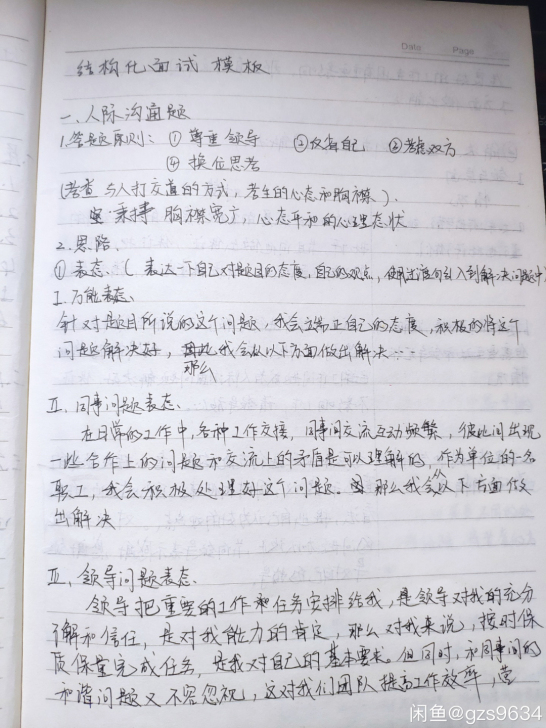 Date Page
结构化面试 模板
一、人际沟通题
1.答题原则: ① 尊重领导 ②反省自己 ③考虑双方
④ 换位思考
(考查 与人打交道的方式,考生的心态和胸襟).
秉持 胸襟宽广,心态平和的心理态状
2.思路.
① 表态.( 表达一下自己对题目的态度,自己的观点,使用过渡句引入到解决问题中
I.万能表态:
针对题目所说的这个问题,我会端正自己的态度,积极的将这个
问题解决好,那么我会从以下方面做出解决…
II.同事问题表态.
在日常的工作中,各种工作交接,同事间交流互动频繁,彼此间出现
一些合作上的问题和交流上的矛盾是可以理解的,作为单位的一名
职工,我会积极处理好这个问题.那么我会从以下方面做
出解决
III.领导问题表态.
领导把重要的工作和任务安排给我,是领导对我的充分
了解和信任,是对我能力的肯定,那么对我来说,按时保
质保量完成任务,是我对自己的基本要求.但同时,和同事间的
和谐问题又不容忽视,这对我们团队提高工作效率,营
闲鱼@gzs9634